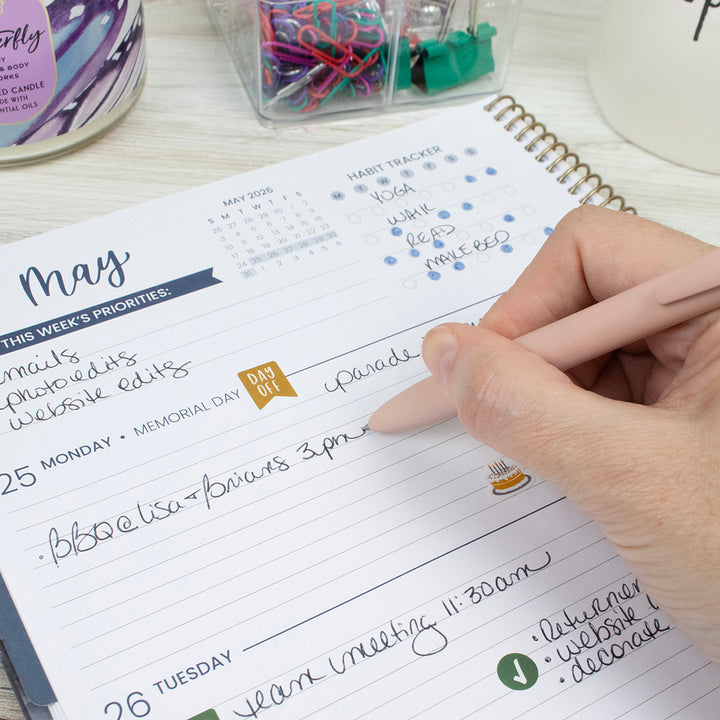 erfly
& BODY
ORKS
ED CANDLE
ADE WITH
ENTIAL OILS
MAY 2026
S M T W T F S
26 27 28 29 30 1 2
3 4 5 6 7 8 9
10 11 12 13 14 15 16
17 18 19 20 21 22 23
24 25 26 27 28 29 30
31 1 2 3 4 5 6
HABIT TRACKER
M T W T F S S
YOGA
WALK
READ
MAKE BED
May
THIS WEEK'S PRIORITIES:
emails
photo edits
website edits
25 MONDAY • MEMORIAL DAY
DAY OFF
parade
• BBQ @ lisa + brians 3pm
26 TUESDAY
team meeting 11:30am
• website
• decorate